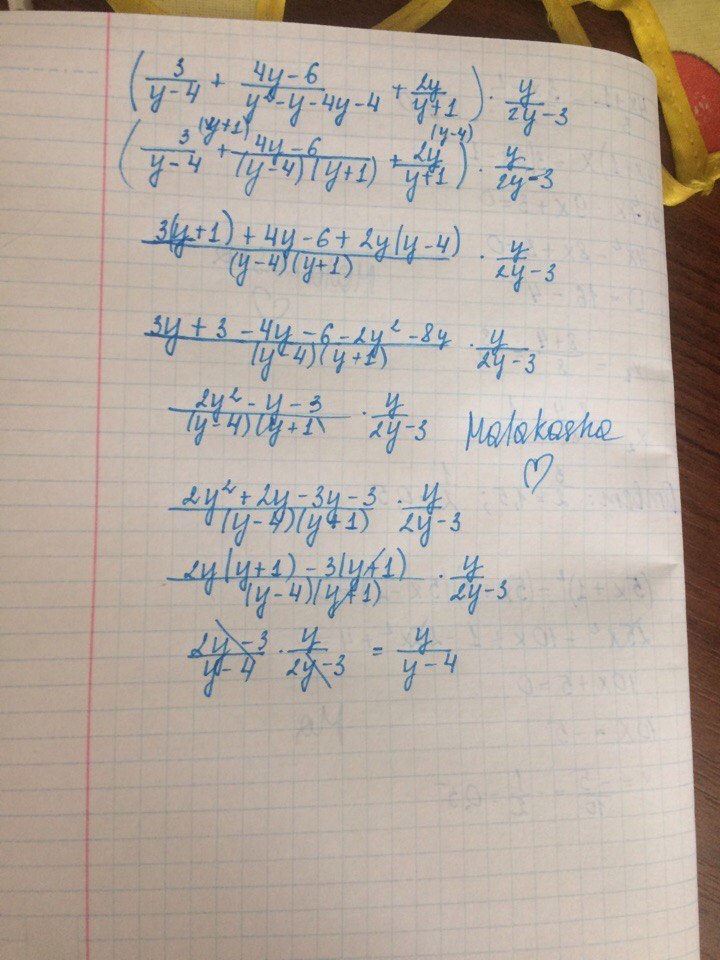 ( 3/(y-4) + (4y-6)/(y²-y-4y-4) + 2y/(y+1) ) · y/(2y-3)
( 3(y+1)/(y-4) + (4y-6)/((y-4)(y+1)) + 2y(y-4)/(y+1) ) · y/(2y-3)
(3(y+1)+4y-6+2y(y-4))/((y-4)(y+1)) · y/(2y-3)
(3y+3-4y-6-2y²-8y)/((y-4)(y+1)) · y/(2y-3)
(2y²-y-3)/((y-4)(y+1)) · y/(2y-3)
Matakasha
(2y²+2y-3y-3)/((y-4)(y+1)) · y/(2y-3)
(2y(y+1)-3(y+1))/((y-4)(y+1)) · y/(2y-3)
(2y-3)/(y-4) · y/(2y-3) = y/(y-4)